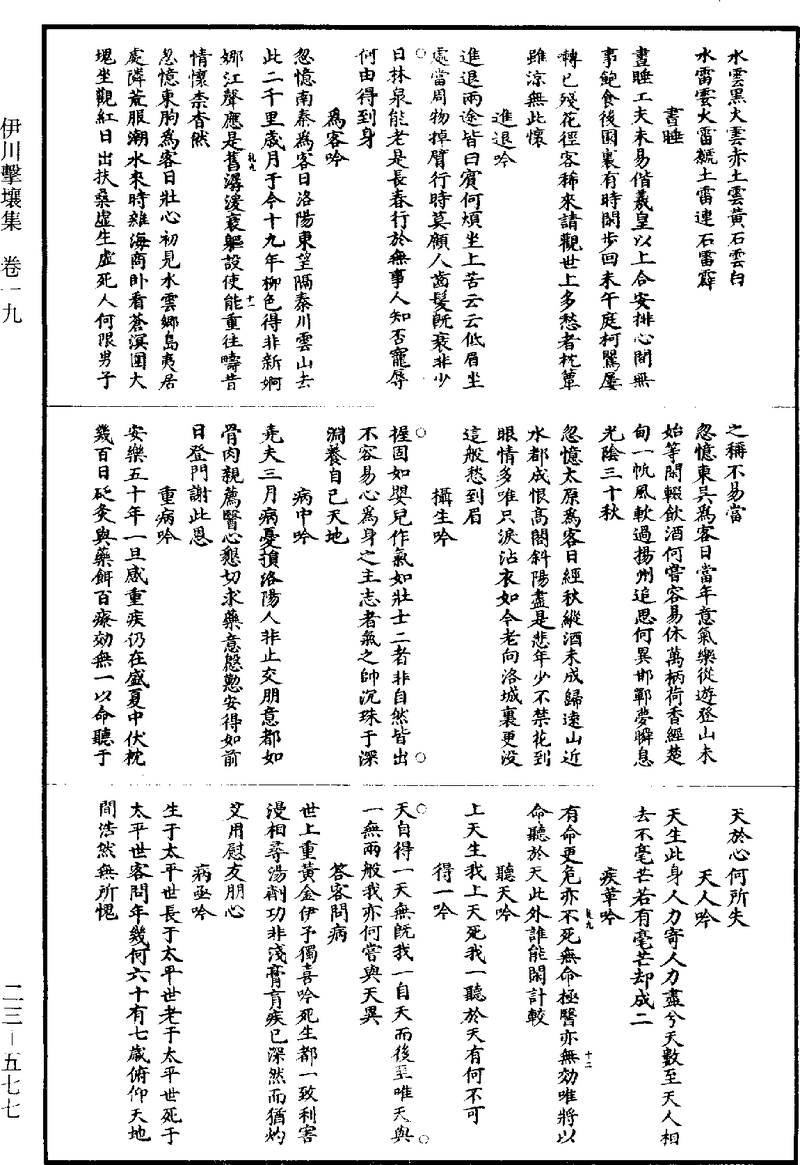 水雲黑火雲赤土雲黃石雲白
水雷雲火雷虩土雷連石雷霹
晝睡
晝睡工夫未易偕羲皇以上合安排心間無
事飽食後園裏有時閑步回未午庭柯鶯屢
囀已殘花徑客稀來請觀世上多愁者枕簟
雖涼無此懷
進退吟
進退兩途皆曰賓何煩坐上苦云云低眉坐
處當周物掉臂行時莫顧人齒髮既衰非少
日林泉能老是長春行於無事人知否寵辱
何由得到身
為客吟
忽憶南秦為客日洛陽東望隔秦川雲山去
此二千里歲月于今十九年柳色得非新婀
娜江聲應是舊潺湲衰軀設使能重往疇昔
情懷柰杳然
忽憶東朐為客日壯心初見水雲鄉島夷居
處隣荒服潮水來時雜海商卧看蒼溟圍大
塊坐觀紅日出扶桑虛生虛死人何限男子
之稱不易當
忽憶東吳為客日當年意氣樂從遊登山未
始等閑輟飲酒何嘗容易休萬柄荷香經楚
甸一帆風軟過揚州追思何異邯鄲夢瞬息
光陰三十秋
忽憶太原為客日經秋縱酒未成歸遠山近
水都成恨高閣斜陽盡是悲年少不禁花到
眼情多唯只淚沾衣如今老向洛城裏更沒
這般愁到眉
攝生吟
握固如嬰兒作氣如壯士二者非自然皆出
不容易心為身之主志者氣之帥沉珠于深
淵養自己天地
病中吟
堯夫三月病憂損洛陽人非止交朋意都如
骨肉親薦醫心懇切求藥意慇懃安得如前
日登門謝此恩
重病吟
安樂五十年一旦感重疾仍在盛夏中伏枕
幾百日砭灸與藥餌百療効無一以命聽于
天於心何所失
天人吟
天生此身人力寄人力盡兮天數至天人相
去不毫芒若有毫芒却成二
疾革吟
有命更危亦不死無命極醫亦無効唯將以
命聽於天此外誰能閑計較
聽天吟
上天生我上天死我一聽於天有何不可
得一吟
天自得一天無既我一自天而後至唯天與
一無兩般我亦何嘗與天異
答客問病
世上重黃金伊予獨喜吟死生都一致利害
漫相尋湯劑功非淺膏肓疾已深然而猶灼
艾用慰友朋心
病亟吟
生于太平世長于太平世老于太平世死于
太平世客問年幾何六十有七歲俯仰天地
間浩然無所愧
伊川擊壤集 卷一九
二三－五七七